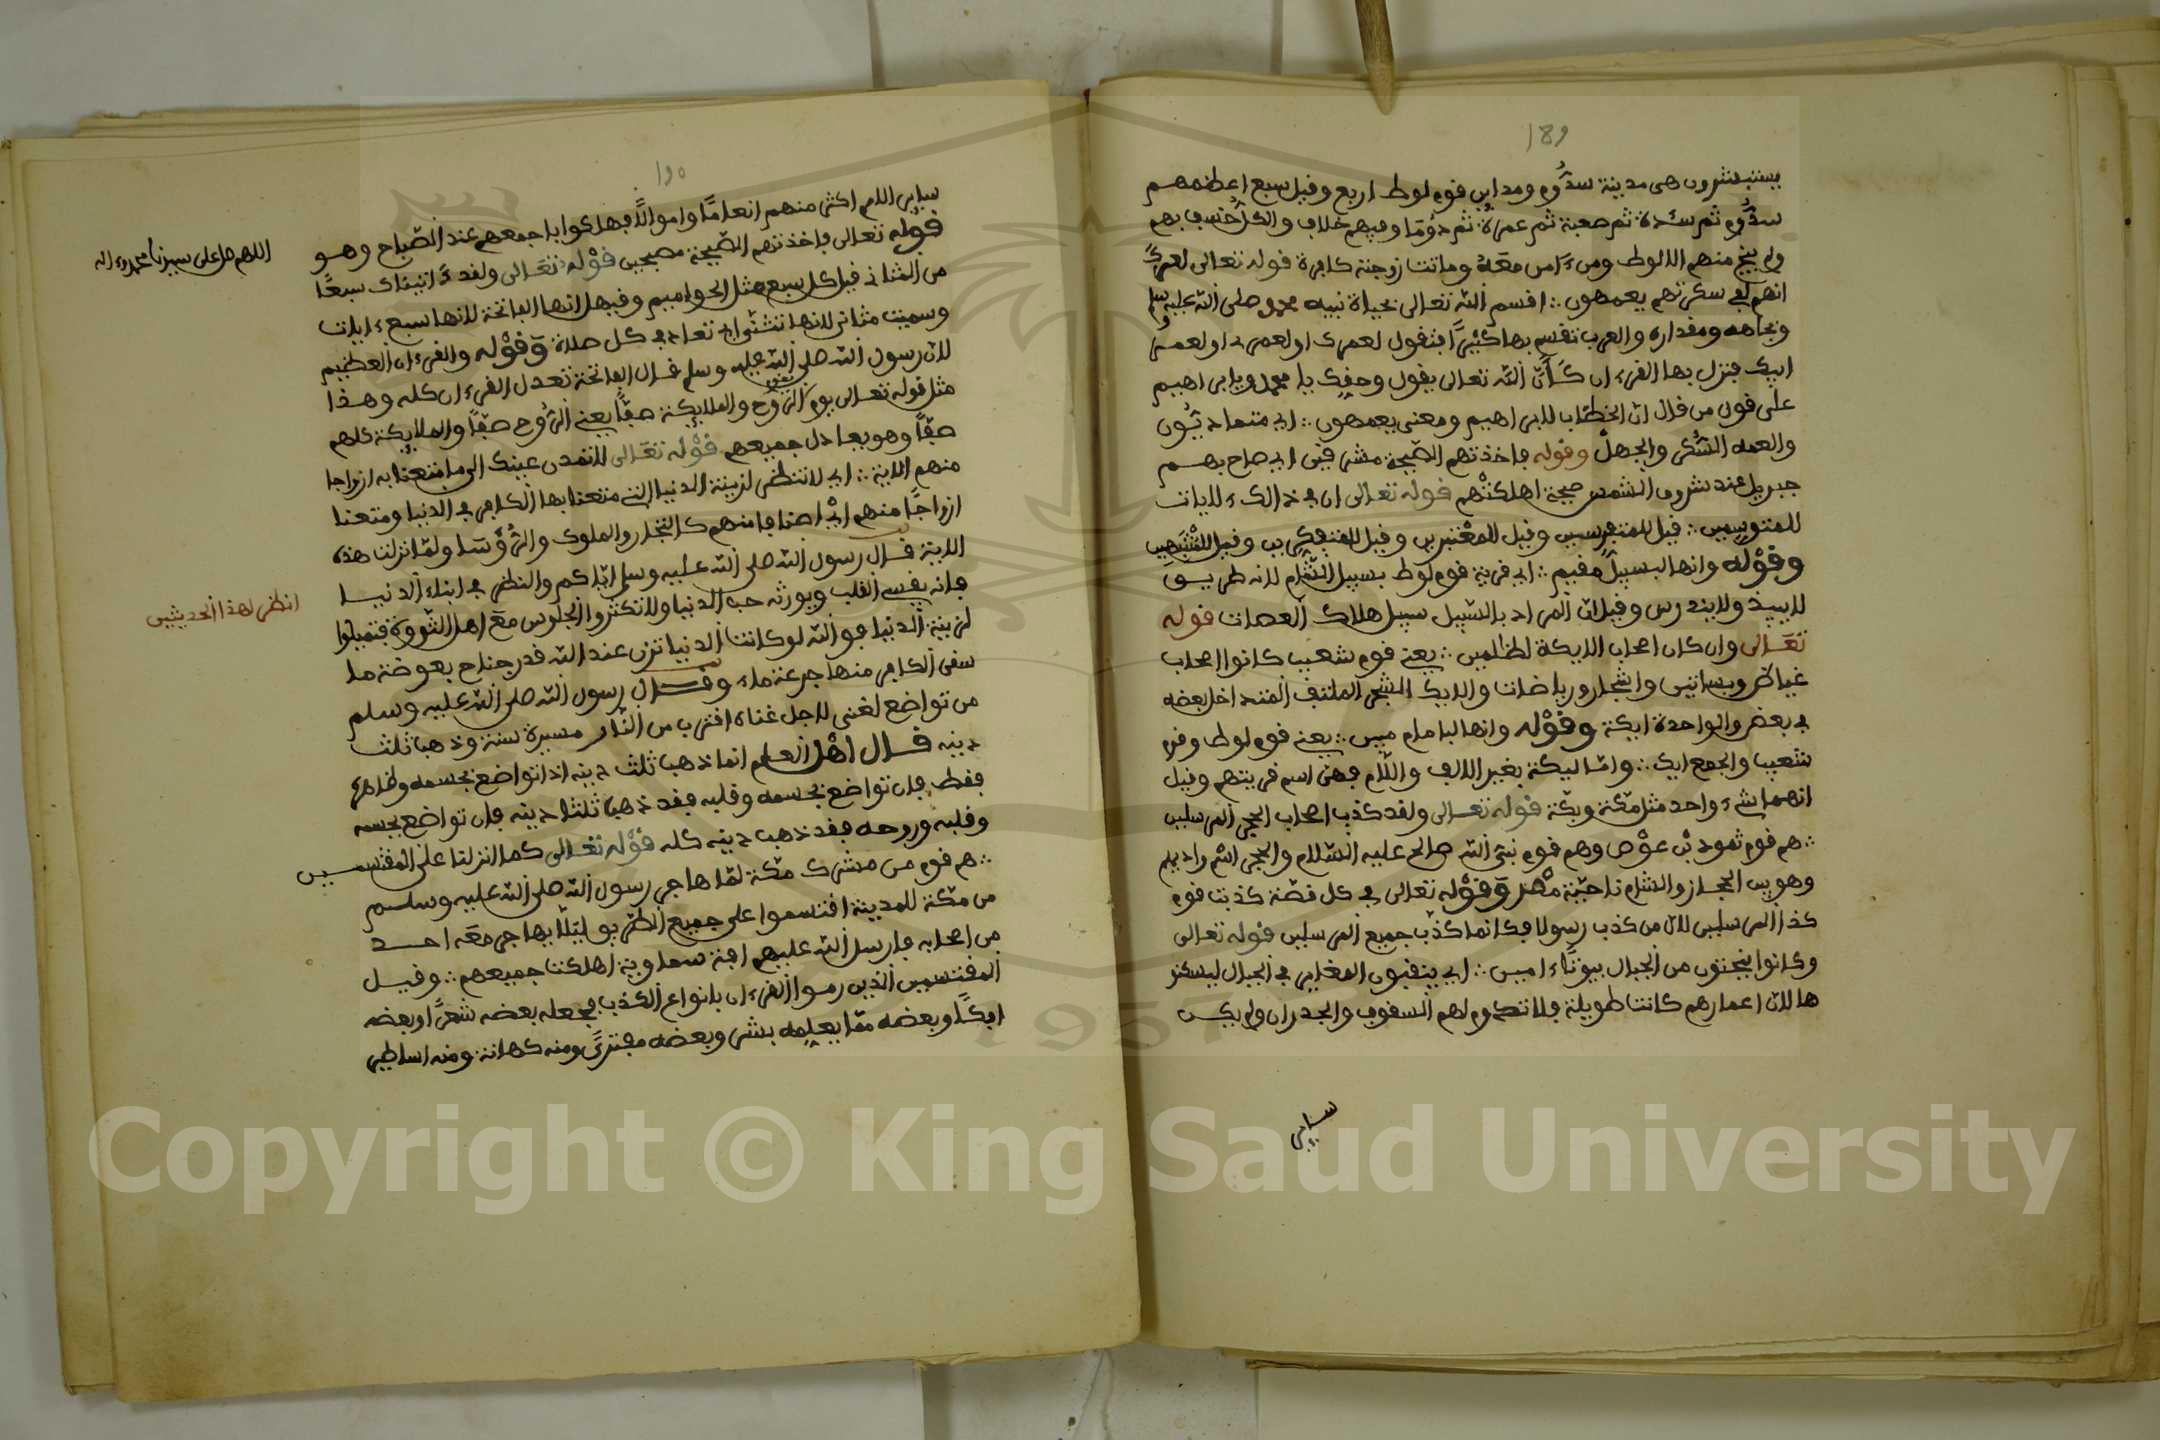 189
يستبشرون هى مدينة سدُوم ومداين قوم لوط اربع وقيل سبع اعظمهم
سدُوم ثم سدة ثم صعبة ثم عمرة ثم دُوما وفيهم خلاف والكل خُسف بهم
ولم ينج منهم الا لوط ومن ءامن معهُ وماتت زوجته كافرة قوله تعالى لعمرك
انهم لفى سكرتهم يعمهون ∴ اقسم الله تعالى بحياة نبيه محمد صلى الله عليه وسلم
وبجاهه ومقداره والعرب تقسم بها كثيرًا فتقول لعمرى او لعمرى او لعمر
ابيك فنزل بها القرءان كأنَّ الله تعالى يقول وحقك يا محمد ويا ابراهيم
على قول من قال انّ الخطاب لابراهيم ومعنى يعمهون ∴ اي متمادّيُون
والعمه السُّكر والجهل وقوله فاخذتهم الصّيحة مشرقين اي صاح بهم
جبريل عند شروق الشمس صيحة اهلكتهم قوله تعالى ان في ذالك ءلايات
للمتوسمين ∴ قيل للمتفرسين وقيل للمعْتبرين وقيل للمتفكرين وقيل للمُتبَصرين
وقوْله وانها لبسبيل مقيم ∴ اي قرية قوم لوط بسبيل الشّام لانه طريق
لا يبيد ولا يندرس وقيل انّ المراد بالسّبيل سبيل هلاك العصات قوله
تعالى وان كان اصحاب الايكة لظلمين ∴ يعنى قوم شعيب كانوا اصحاب
غياظر وبساتين واشجار ورياضات والايك الشجر الملتف المتداخل بعضه
في بعض والواحدة ايكة وقوْله وانها لبامام مبين ∴ يعنى قوم لوط وقوم
شعيب والجمع ايك ∴ وامّا ليكة بغير الالف واللّام فهى اسم قريتهم وقيل
انهما شيء واحد مثل مكّة وبكّة قوله تعالى ولقد كذب اصحاب الحجر المرسلين
∴ هم قوم ثمود بْن عوْص وهم قوم نبيّ الله صالح عليه السّلام والحجر اسْم واديهم
وهو بين الحجاز والشام ناحيَة مصْر وقوْله تعالى في كل قصّة كذبت قوم
كذا المرسلين لانّ من كذب رسولا فكانما كذّب جميع المرسلين قوله تعالى
وكانوا ينحتون من الجبال بيوتًا ءامنين ∴ اي ينقبون المغاير في الجبال ليسكنو
ها لانّ اعمارهم كانت طويلة فلا تدوم لهم السقوف والجدران ولم يكن
ساير
190
ساير الامم اكثر منهم انعامًا واموالًا فهلكوا باجمعهم عند الصّباح وهو
قوْله تعالى فاخذتهم الصّيحة مصبحين قوْله تعَالى ولقد ءاتيناك سبعًا
من المثانى قيل كل سبع مثل الحواميم وقيل انها الفاتحة لانها سبع ءايات
وسميت مثانى لانها تثنّى اي تعاد في كل صلاة وقوْله والقرءان العظيم
لانّ رسول الله صلى الله عليه وسلم قال الفاتحة تعدل القرءان كله وهذا
مثل قوله تعالى يوم يقوم الرّوح والملايكة صفًّا يعنى الرُّوح صفًّا والملايكة كلهم
صفًّا وهو يعادل جميعهم قوْله تعَالى لا تمدن عينيك الى ما متعنا به ازواجا
منهم الاية ∴ اي لا تنظر لزينة الدنيا التى متعنا بها الكافر في الدنيا ومتعنا
ازواجًا منهم ايْ اصنافا منهم كالتجار والملوك والرُّؤَسَا ولمّا نزلت هذه
الاية قال رسول الله صلى الله عليه وسلم ايّاكم والنظر في ابناء الدنيا
فانه يقسى القلب ويورث حب الدنيا ولا تكثروا الجلوس معَ اهل الثروة فتميلوا
لزينة الدنيا فو الله لو كانت الدنيا تزن عند الله قدر جناح بعوضة ما
سقى الكافر منها جرعة ماء وقال رسول الله صلى الله عليه وسلم
من تواضع لغنى لاجل غناه اقترب من النّار مسيرة سنة وذهب ثلث
دينه قال اهْل العلم انما ذهب ثلث دينه اذا تواضع بجسمه وظاهره
فقط فان تواضع بجسمه وقلبه فقد ذهب ثلثا دينه فان تواضع بجسمه
وقلبه وروحه فقد ذهب دينه كله قوْله تعَالى كما انزلنا على المقتسمين
∴ هم قوم من مشرك مكّة لمّا هاجر رسول الله صلى الله عليه وسلم
من مكّة للمدينة اقتسموا على جميع الطّريق ليَلّا يهاجر معَه احد
من اصحابه فارسل الله عليهم افة سماوية اهلكت جميعهم ∴ وقيل
المقتسمين الذين رموا القرءان بانواع الكذب فجعله بعضه شعرًا وبعضه
افكًا وبعضه ممّا يعلمه بشر وبعضه مفترًى ومنه كهانة ومنه اساطير
اللهم صل على سيدنا محمد وءاله
انظر لهذا الحديثين
Copyright © King Saud University
1957